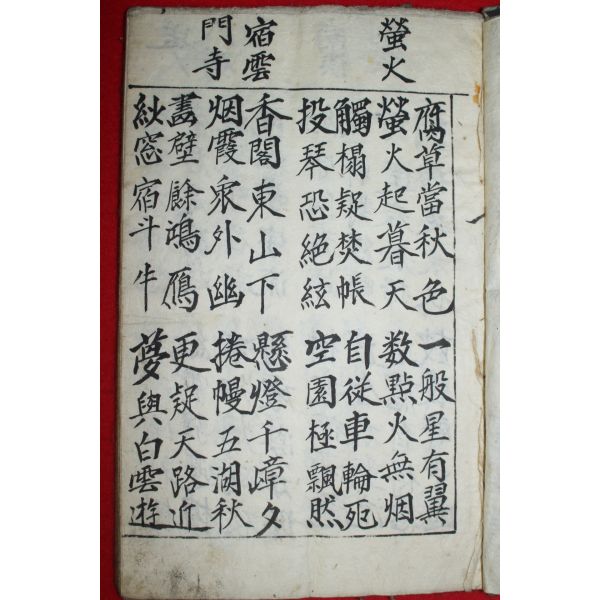 螢火
腐草當秋色 一般星有翼
螢火起暮天 数點火無烟
觸榻疑焚帳 自從車輪死
投琴恐絶絃 空園極飄然
宿雲
門寺
香閣東山下 懸燈千嶂夕
烟霞衆外幽 捲幔五湖秋
畵壁餘鴻鴈 更疑天路近
紗窓宿斗牛 夢與白雲遊